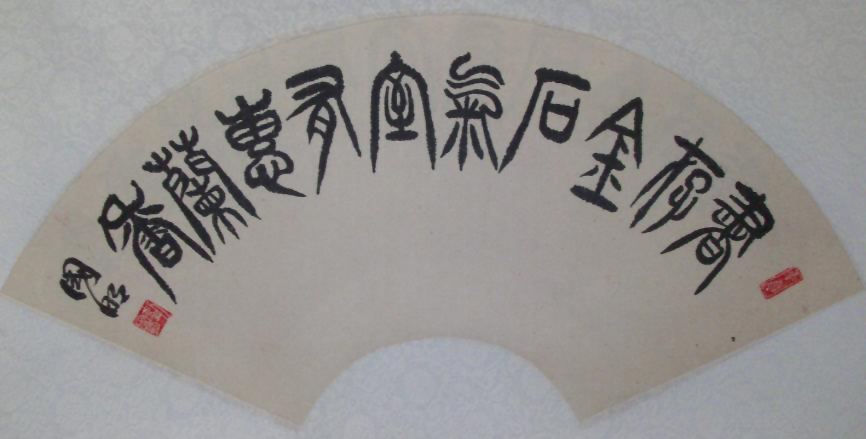 書存金石氣室有蕙蘭香
國昭